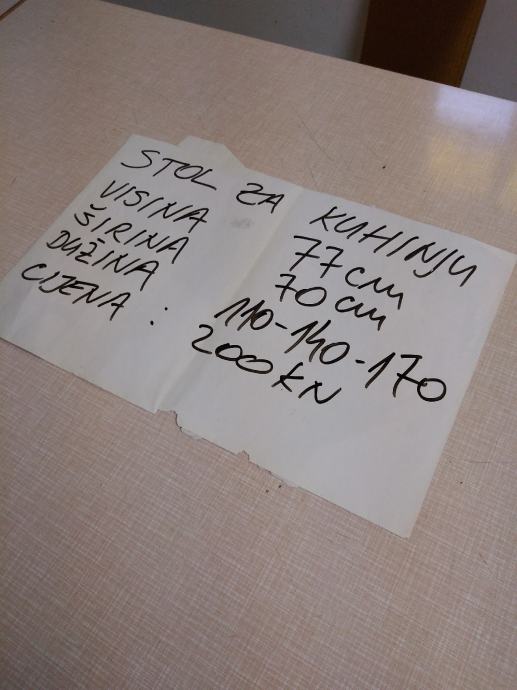 STOL ZA KUHINJU
VISINA 77 cm
ŠIRINA 70 cm
DUŽINA 110-140-170
CIJENA : 200 KN